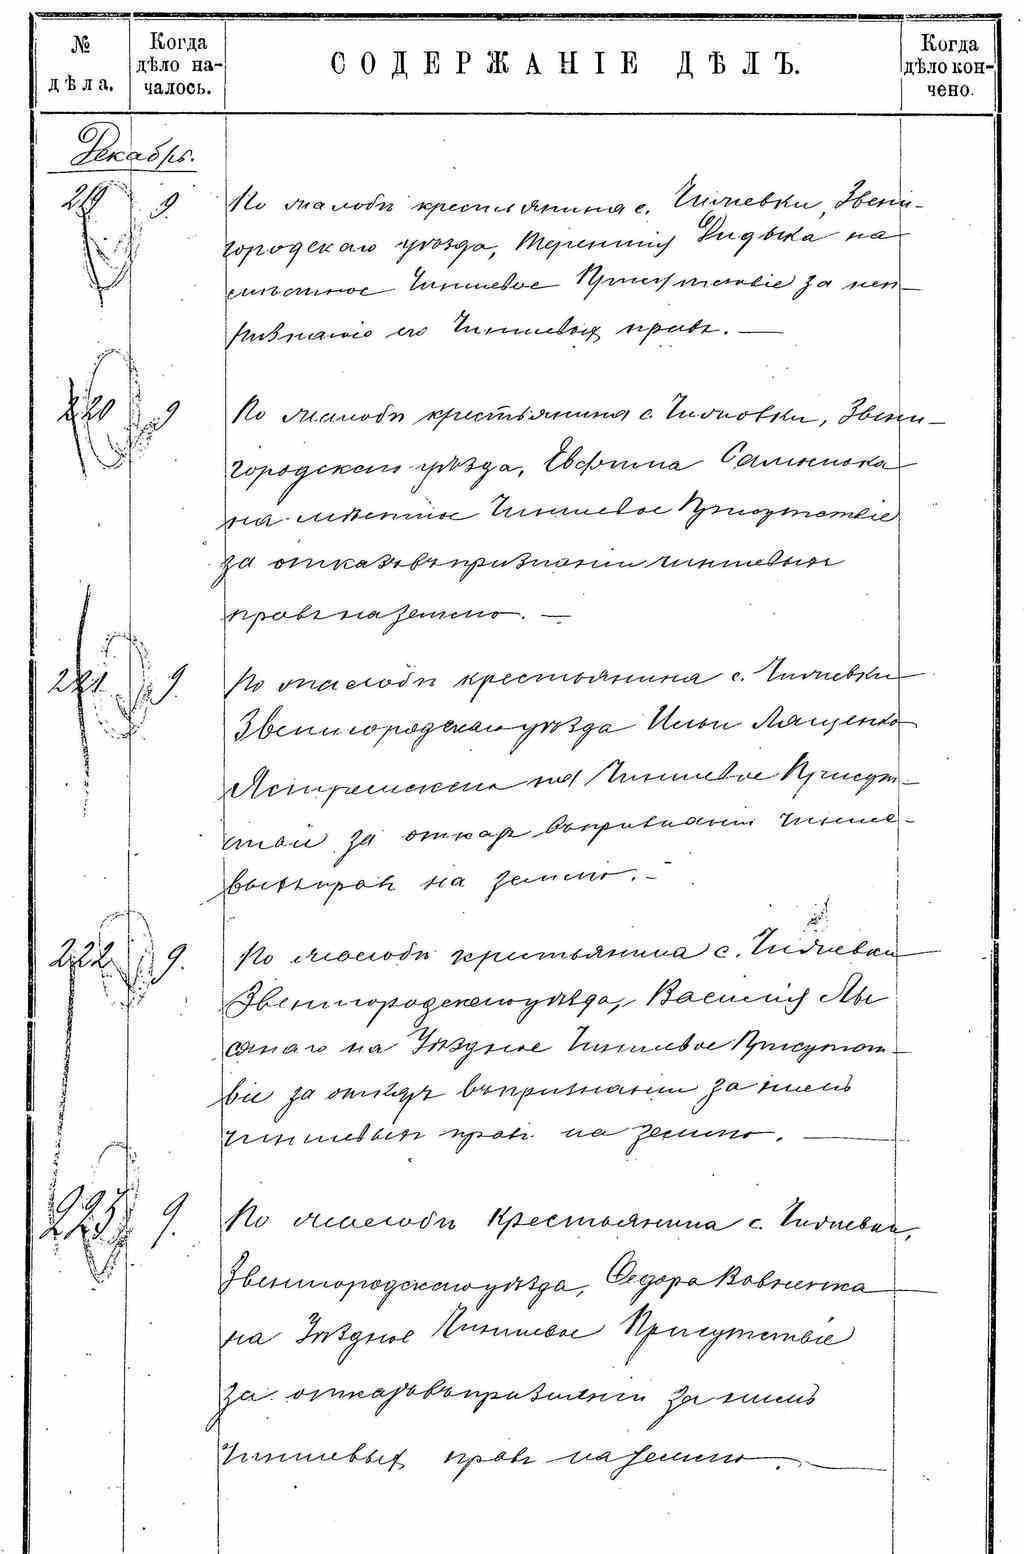 № дѣла.
Когда дѣло на-
чалось.
СОДЕРЖАНІЕ ДѢЛЪ.
Когда дѣло кон-
чено.
Декабрь.
219 9 По жалобѣ крестьянина с. Чижевки, Звени-
городскаго уѣзда, Терентія Дидыка на
мѣстное Чиншевое Присутствіе за неп-
ризнаніе его Чиншевых правъ. —
220 9 По жалобѣ крестьянина с. Чижовки, Звени-
городскаго уѣзда, Евфима
на мѣстное Чиншевое Присутствіе
за отказъ въ признаніи чиншевыхъ
правъ на землю. —
221 9. По жалобѣ крестьянина с. Чижевки
Звенигородскаго уѣзда Ильи Лященко
на Чиншевое Присут-
за отказ въ признаніи чинше-
выхъ правъ на землю. —
222 9. По жалобѣ крестьянина с. Чижевки
Звенигородскаго уѣзда, Василія Лы
на Уѣздное Чиншевое Присутст-
віе за отказъ въ признаніи за нимъ
чиншевыхъ правъ на землю. —
223 9. По жалобѣ Крестьянина с. Чижевки,
Звенигородскаго уѣзда, Федора
на Уѣздное Чиншевое Присутствіе
за отказъ въ признаніи за нимъ
Чиншевых правъ на землю. —